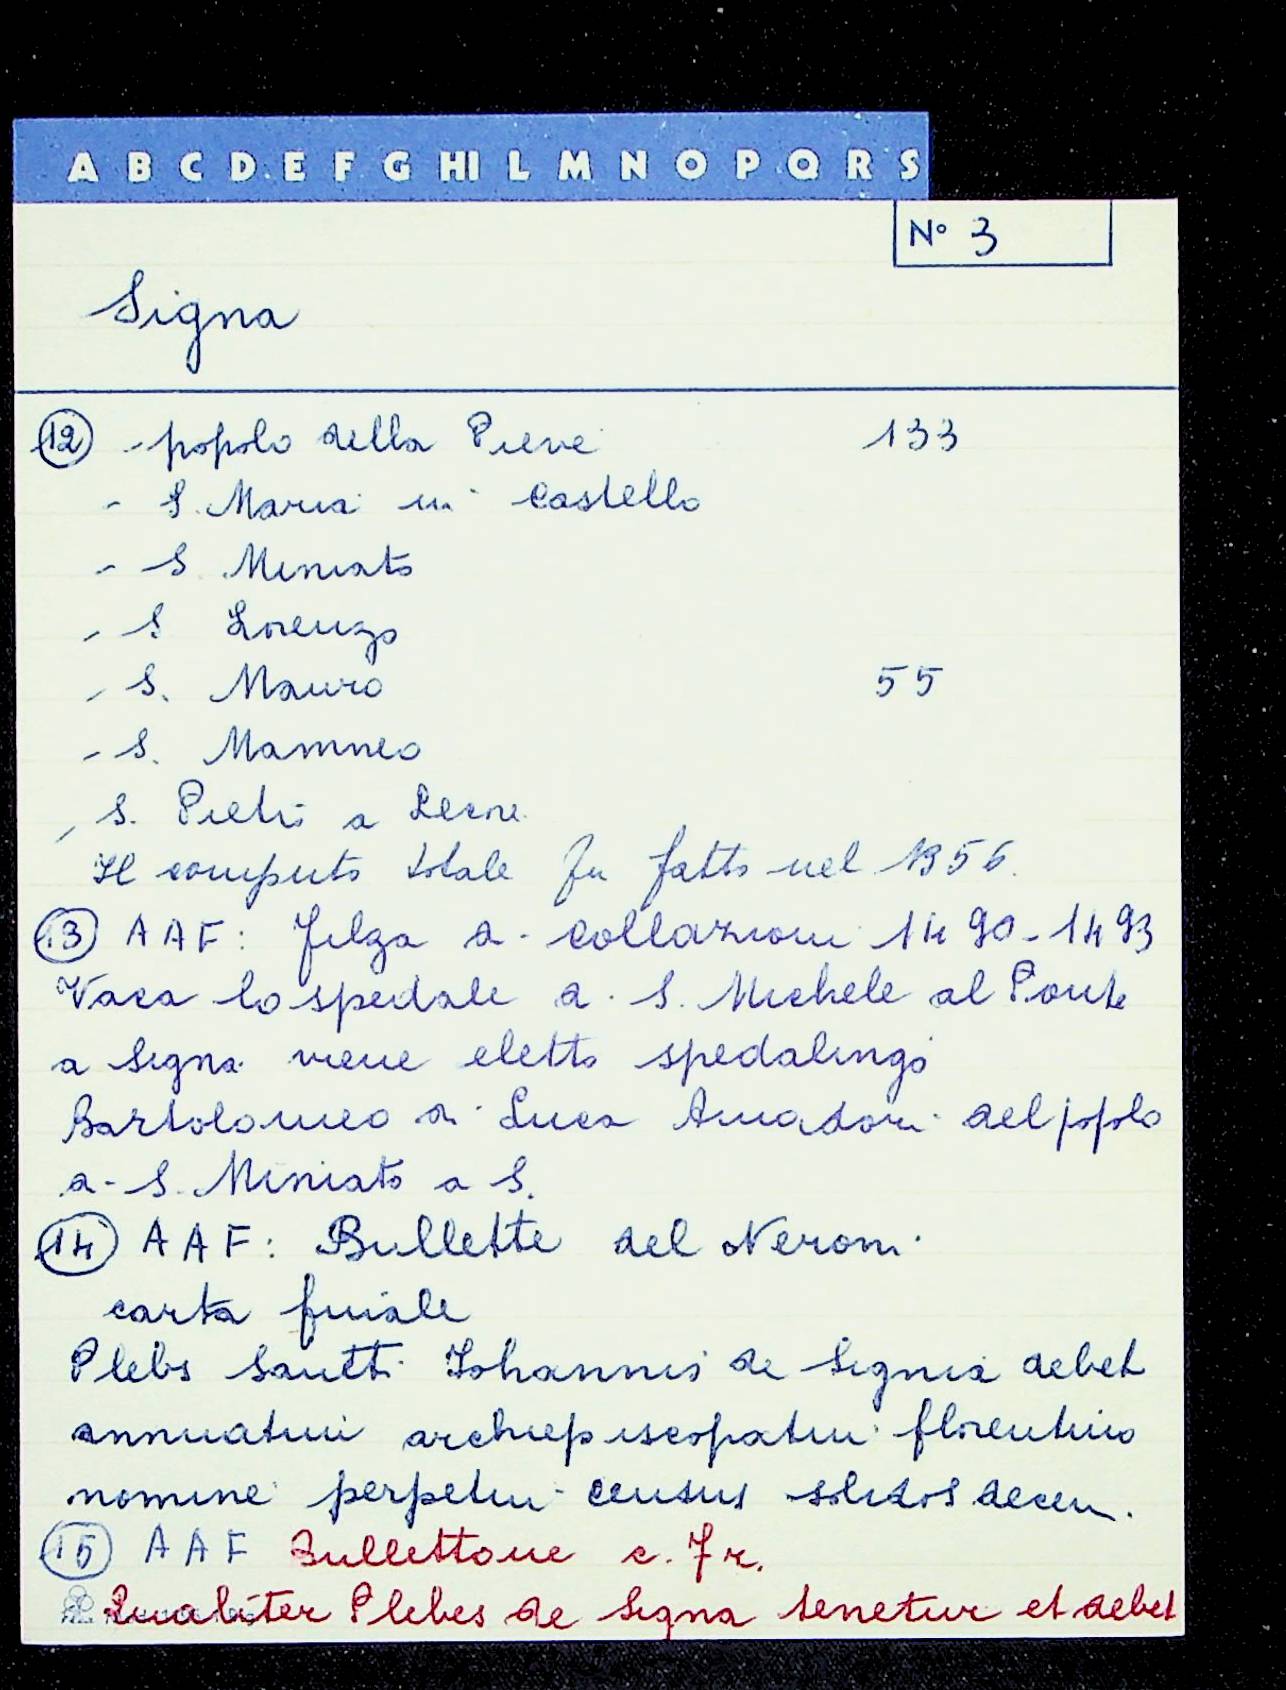 A B C D E F G HI L M N O P Q R S
N° 3
Signa
12 - popolo della Pieve 133
- S. Maria in Castello
- S Miniato
- S Lorenzo
- S. Mauro 55
- S. Mamneo
- S. Pietro a Lecore
Il computo totale fu fatto nel 1356.
13 AAF: Filza di collazioni 1490-1493
Vaca lo spedale di S. Michele al Ponte
a Signa viene eletto spedalingo
Bartolomeo di Luca Amadori del popolo
di S. Miniato a S.
14 AAF: Bullette del Neroni
carta finale
Plebs Santti Iohannis de Signia debet
annuatim archiepiscopatui florentino
nomine perpetui census solidos decem.
15 AAF Bullettone c. 7 r.
Qualiter Plebes de Signa tenetur et debet